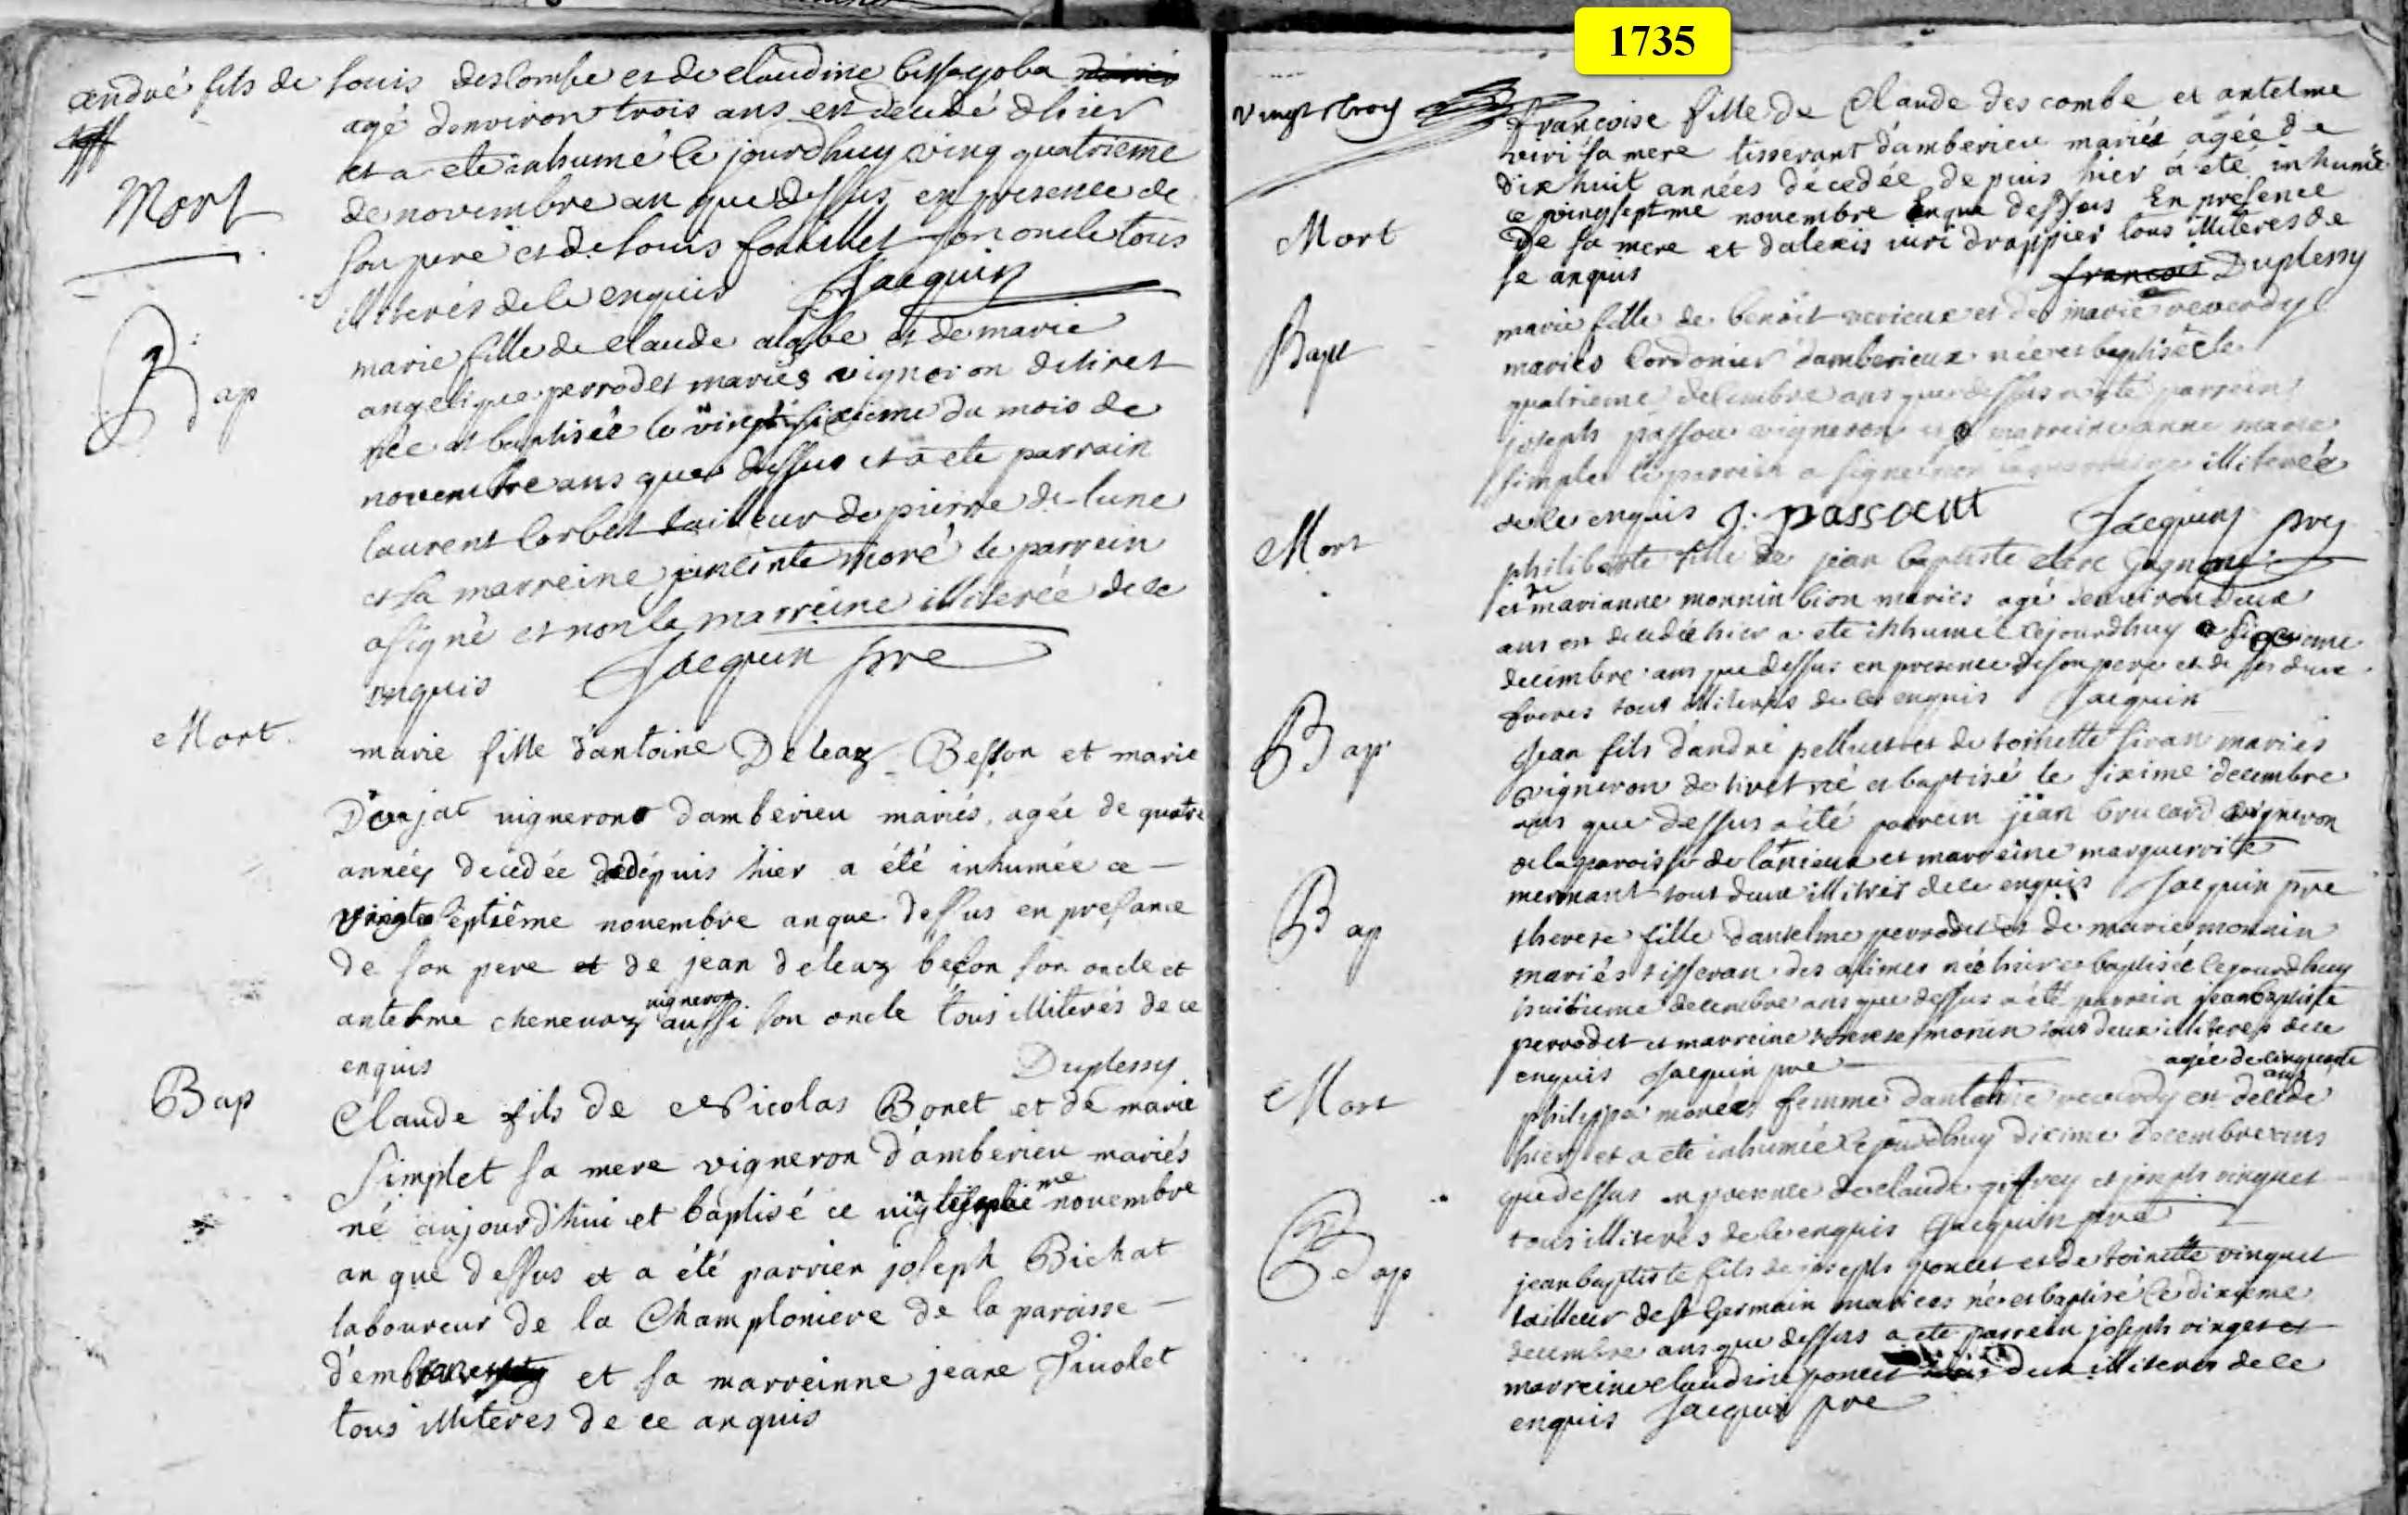 andré fils de louis descombe et de claudine
agé denviron trois ans est decedé dhier
et a ete inhumé le jourdhuy ving quatrieme
de novembre an que dessus en presence de
son pere et de louis son oncle tous
illiterés de ce enquis Jacquin
Mort
marie fille de claude et de marie
angelique perrodet mariés vigneron de tiret
née et baptisée le vingt sixieme du mois de
novembre ans que dessus et a ete parrain
laurent corbet tailleur de pierre de lune
et la marreine jacinte moré le parrein
a signé et non la marreine illiterée de ce
enquis Jacquin pre
Bap
Mort
marie fille d'antoine Deleaz Besson et marie
vignerons damberieu mariés, agée de quatre
années décédée dépuis hier a été inhumée ce
vingt septiême novembre an que dessus en presance
de son pere et de jean deleaz beçon son oncle et
antelme chenevaz vigneron aussi son oncle tous illiterés de ce
enquis Duplessy
Bap
Claude fils de Nicolas Bonet et de marie
Simplet sa mere vigneron d'amberieu mariés
né aujourd'hui et baptisé ce novembre
an que dessus et a été parrien joseph Bichat
laboureur de la Champloniere de la paroisse
et sa marreinne jeane Pinolet
tous illiteres de ce anquis
1735
vingt troy
françoise fille de Claude descombe et antelme
viri sa mere tisserant damberieu mariés agée de
dix huit années décédée depuis hier a été inhumé
ce vingseptme novembre anque dessus En presence
de sa mere et dalexis viri drappier tous illiteres de
se anquis françois Duplessy
Mort
Bapt
marie fille de benoit verieux et de marie reverdy
mariés cordonier damberieux née et baptisée le
quatrieme decembre ans que dessus a ete parrein
joseph passou vigneron et marreine anne marie
simplet le parrein a signé non la marreine illiterée
de ce enquis J. passout Jacquin pre
Mort
philiberte fille de jean baptiste clerc gagneur
et de marianne monnin bion mariés agé denviron deux
ans est decedée hier a ete inhumée cejourdhuy sixieme
decembre ans que dessus en presence de son pere et de ses deux
freres tous illiterés de ce enquis Jacquin
Bap
Jean fils d'andré pelluet et de toinette siran mariés
vigneron de tiret né et baptisé le sixime decembre
ans que dessus a été parrein jean brucard vigneron
de la paroisse de lanieux et marreine marguerrite
mermant tout deux illitrés de ce enquis Jacquin pre
Bap
therese fille dantelme perrodet et de marie monnin
mariés tisseran des alimes née hier baptisée cejourdhuy
huitieme decembre ans que dessus a été parrein jean baptiste
perrodet et marreine therese monin tous deux illiteres de ce
enquis Jacquin pre
Mort
agée de cinquante ans
philippa morées femme dantoine reverdy est decede
hier et a ete inhumée cejourdhuy dixime decembre ans
que dessus en presence de claude giffrey et joseph vinguet
tous illiterés de ce enquis Jacquin pre
Bap
jean baptiste fils de joseph poncet et de toinette vinguet
tailleur de st Germain mariees né et baptisé le dixieme
decembre ans que dessus a ete parrein joseph vinget et
marreine claudine poncet deux illiterés de ce
enquis Jacquin pre